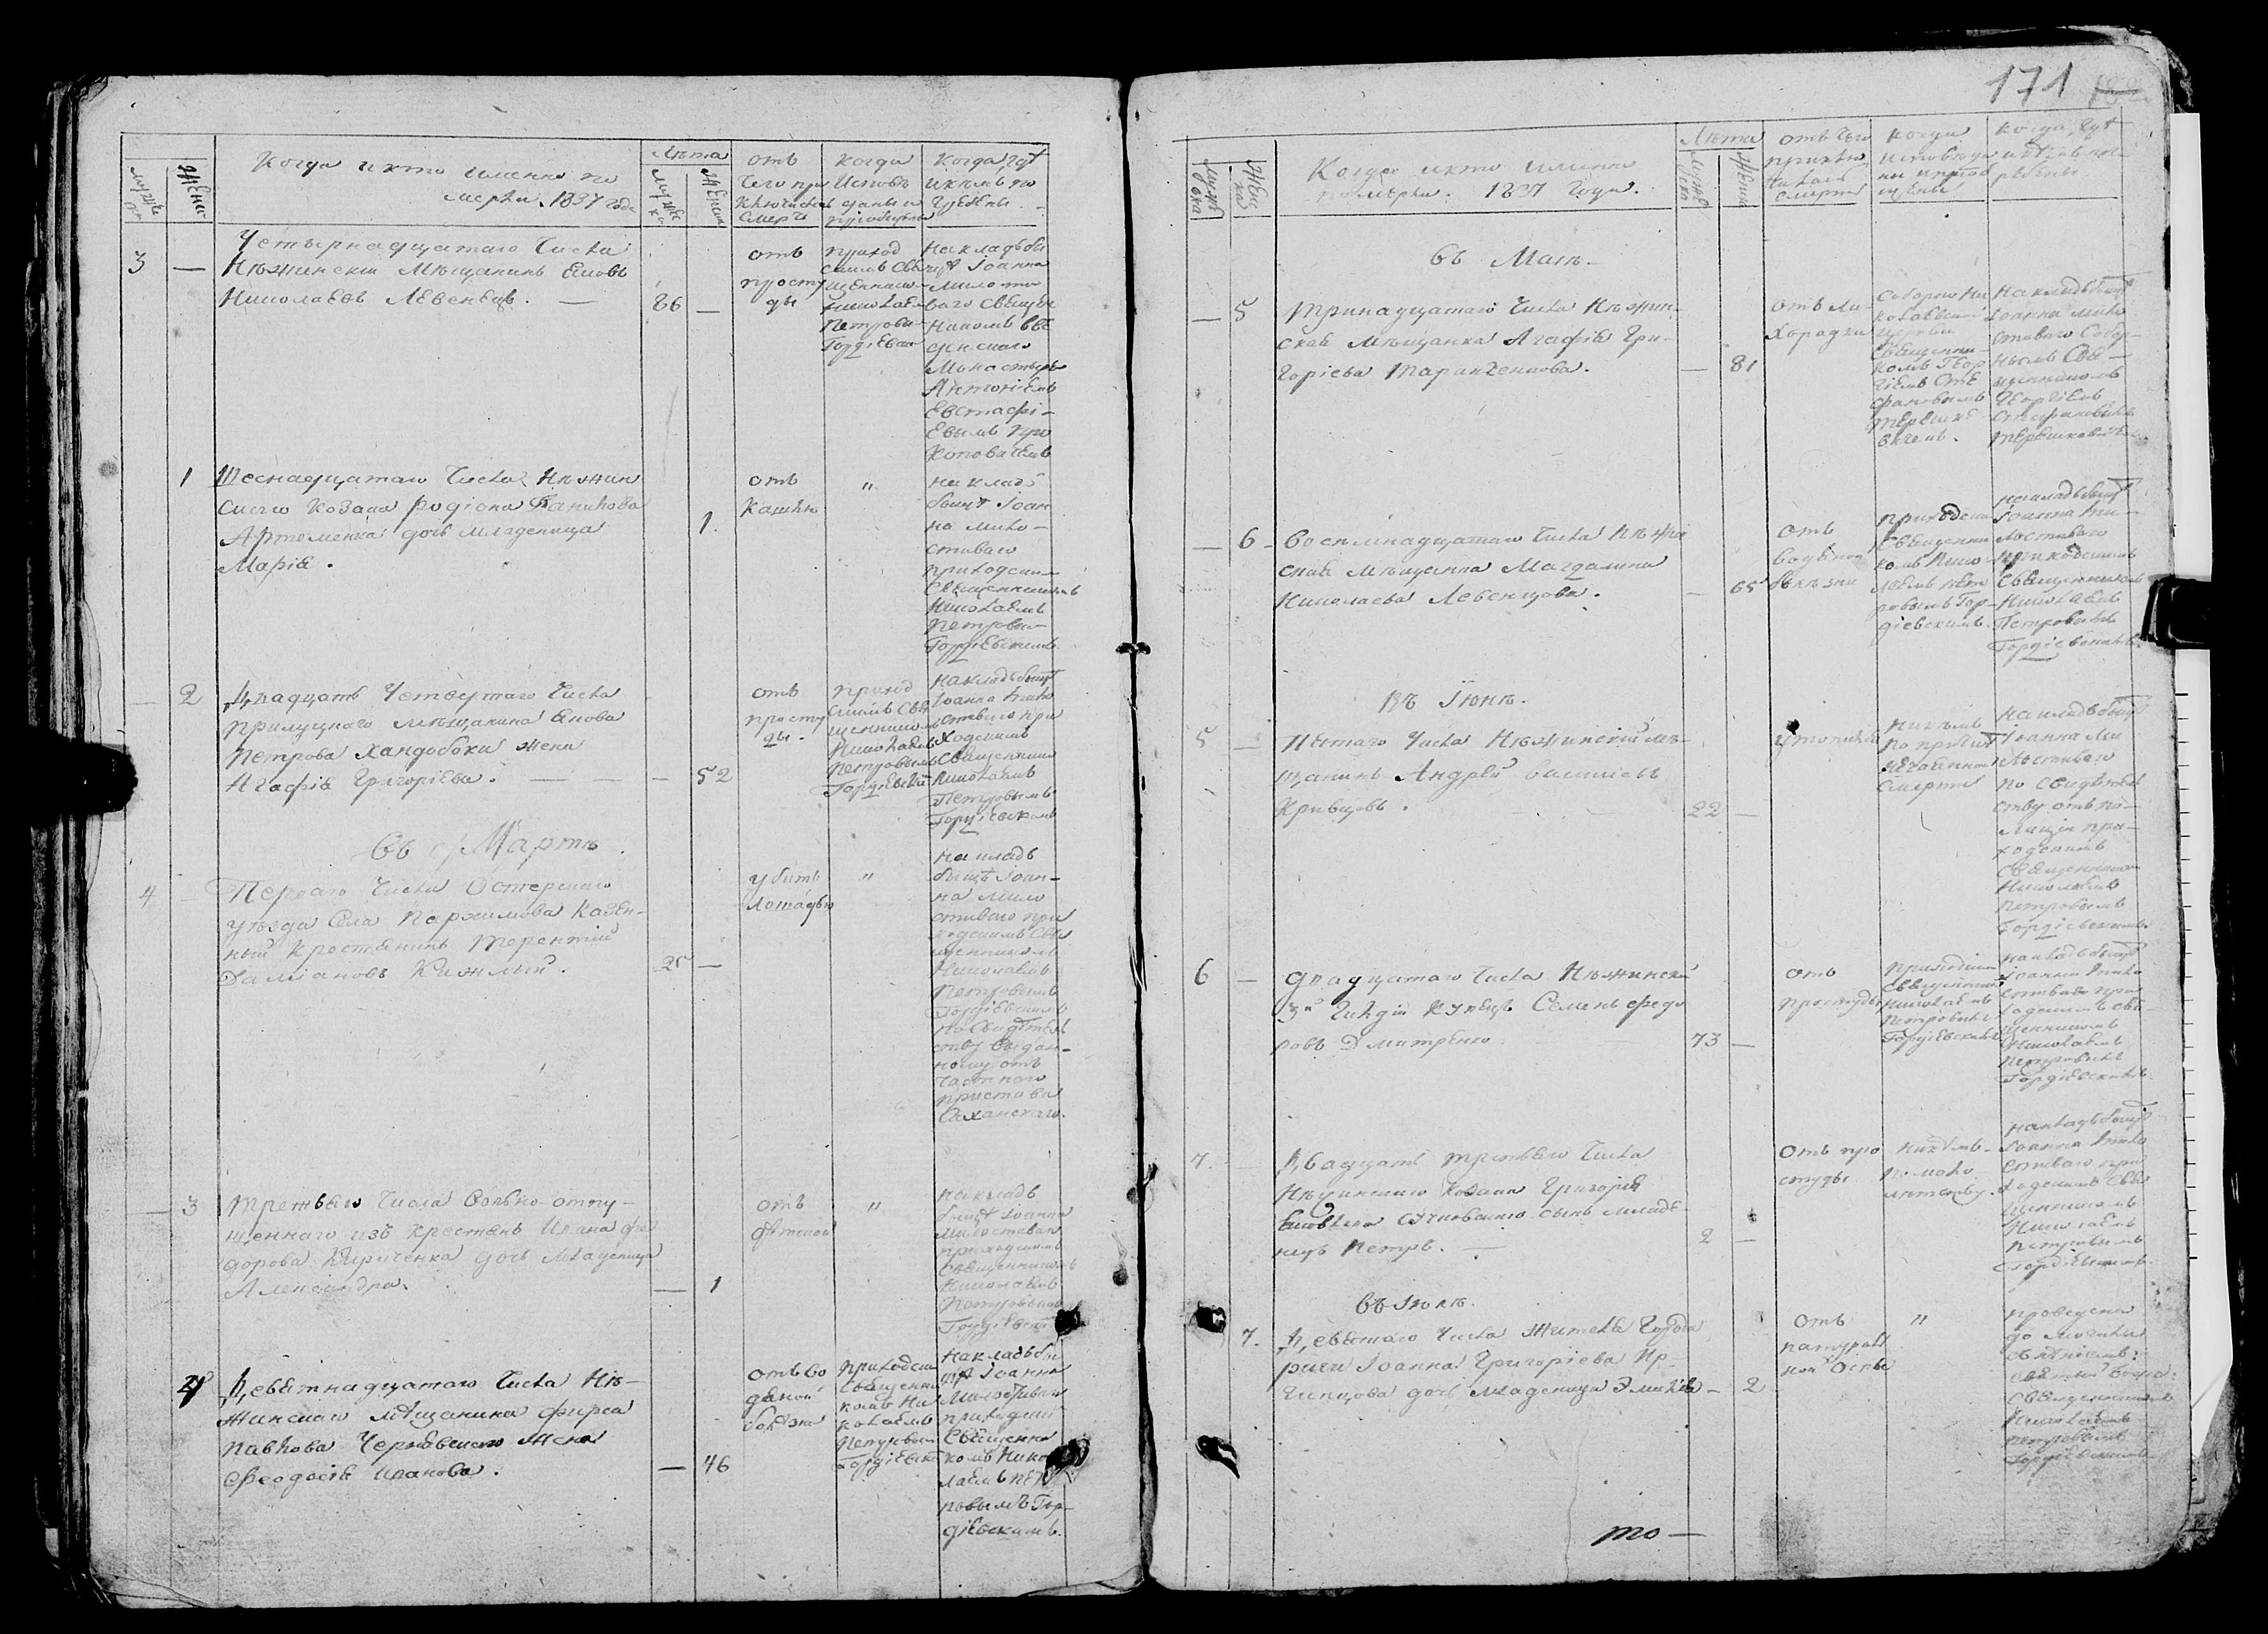 171
Когда и кто именно по
мерли. 1837 года
Лѣта
отъ
чего при
ключилась
смерть
когда
исповѣ
даны и
приобщены
когда, гдѣ
и кѣмъ по
гребены
3 —
Четырнадцатаго числа
Нѣжинскій мѣщанинъ Яковъ
Николаевъ Левенецъ. —
86 —
отъ
просту
ды
приход
скимъ Свя
щенником
Николаем
Петровы
Гордіевски
на кладби
щѣ Іоанна
Милости
ваго Священ
никомъ Вве
денскаго
Монастыря
Антоніемъ
Евстафі-
евымъ Про
коповичемъ
1
Шеснадцатаго числа Нѣжин
скаго козака Родіона Данилова
Артеменка дочь младеница
Марія.
1.
отъ
кашлю
"
на клад
бищѣ Іоан
на Мило-
стиваго
приходским
Священникомъ
Николаемъ
Петровы
Гордіевскимъ
— 2
Двадцать четвертаго числа
Прилуцкаго мѣщанина Якова
Петрова Хандобоки жена
Агафія Григоріева. — — — 52
отъ
просту
ды.
приход
скимъ Свя
щеннико
Николаемъ
Петровымъ
Гордіевски
на кладбищѣ
Іоанна Мило
стиваго при
ходскимъ
Священнико
Николаемъ
Петровымъ
Гордіевскимъ
въ Мартѣ.
4
Перваго числа Остерскаго
уѣзда села Пархимова казен-
ный крестянинъ Терентій
Даміановъ Кижлый.
25 —
убитъ
лошадью
"
на кладъ
бищѣ Іоан-
на Мило
стиваго при
ходскимъ Свя
щенником
Николаемъ
Петровымъ
Гордіевскимъ
по свидѣтель
ству выдан-
ному отъ
частнаго
пристава
Саханскаго.
— 3
Третьяго числа вольно-отпу-
щеннаго изъ крестянъ Ивана Фе
дорова Кириченка дочь младеница
Александра.
— 1
отъ
"
на кладъ
бищѣ Іоанна
Милостиваго
приходскимъ
Священникомъ
Николаемъ
Петровымъ
Гордіевским
4
Девятнадцатаго числа Нѣ-
жинскаго мѣщанина Фирса
Павлова Чернявского жена
Феодосія Иванова.
— 46
отъ во
дяной
болѣзни
приходски
Священни
комъ Ни
колаемъ
Петровым
Гордіевски
на кладби
щѣ Іоанна
Милостиваго
приходски
Священни
комъ Нико
лаемъ Пет
ровымъ Гор-
діевскимъ.
Когда и кто именно
померли. 1837 года.
Лѣта
отъ чего
приклю
чилась
смерть
когда
исповѣда
ны и приоб
щены
когда, гдѣ
и кѣмъ пог-
ребены
въ Маѣ.
— 5
Тринадцатаго числа Нѣжин-
ская мѣщанка Агафія Гри-
горіева Таранченкова.
— 81
отъ ли-
хорадки
Соборно Ни
колаевской
церкви
Священни-
комъ Геор
гіемъ Сте
фановымъ
Терешке
вичемъ.
на кладбищѣ
Іоанна Мило
стиваго Собор-
нымъ Свя-
щенникомъ
Георгіемъ
Стефановымъ
Терешкевичемъ
— 6 —
Восемнадцатаго числа Нѣжин
ская мѣщанка Магдалина
Николаева Левенцова.
— 65
отъ
водяной
болѣзни
приходски
Священни
комъ Нико
лаемъ Пет
ровымъ Гор-
діевскимъ.
на кладбищѣ
Іоанна Ми-
лостиваго
приходскимъ
Священникомъ
Николаемъ
Петровымъ
Гордіевскимъ.
въ Іюнѣ.
5 —
Пятаго числа Нѣжинскій мѣ-
щанинъ Андрей Василіевъ
Кривцовъ.
22 —
никѣмъ
по причинѣ
нечаянной
смерти
на кладбищѣ
Іоанна Ми
лостиваго
по свидѣтель
ству отъ по-
лиціи при-
ходскимъ
Священником
Николаемъ
Петровымъ
Гордіевскимъ
6 —
Двадцатаго числа Нѣжинскій
3й гилдіи купецъ Семенъ Федо
ровъ Дмитренко.
73 —
отъ
простуды
приходским
Священником
Николаемъ
Петровымъ
Гордіевскимъ
на кладбищѣ
Іоанна Мило
стиваго при
ходскимъ Свя-
щенникомъ
Николаемъ
Петровымъ
Гордіевскимъ.
7. —
Двадцать третьяго числа
Нѣжинскаго козака Григорія
сынъ младе-
нецъ Петръ. —
2 —
отъ про
студы
никѣмъ
по мало
лѣтству.
на кладбищѣ
Іоанна Мило
стиваго при
ходскимъ Свя
щенникомъ
Николаемъ
Петровымъ
Гордіевскимъ.
въ Іюлѣ.
7.
Девятаго числа жителя города
Риги Іоанна Григоріева
дочь младеница Эмилія — 2
отъ
натураль
ной оспы
"
проведена
до могилы
Священникомъ
Николаемъ
Петровымъ
Гордіевскимъ
то —